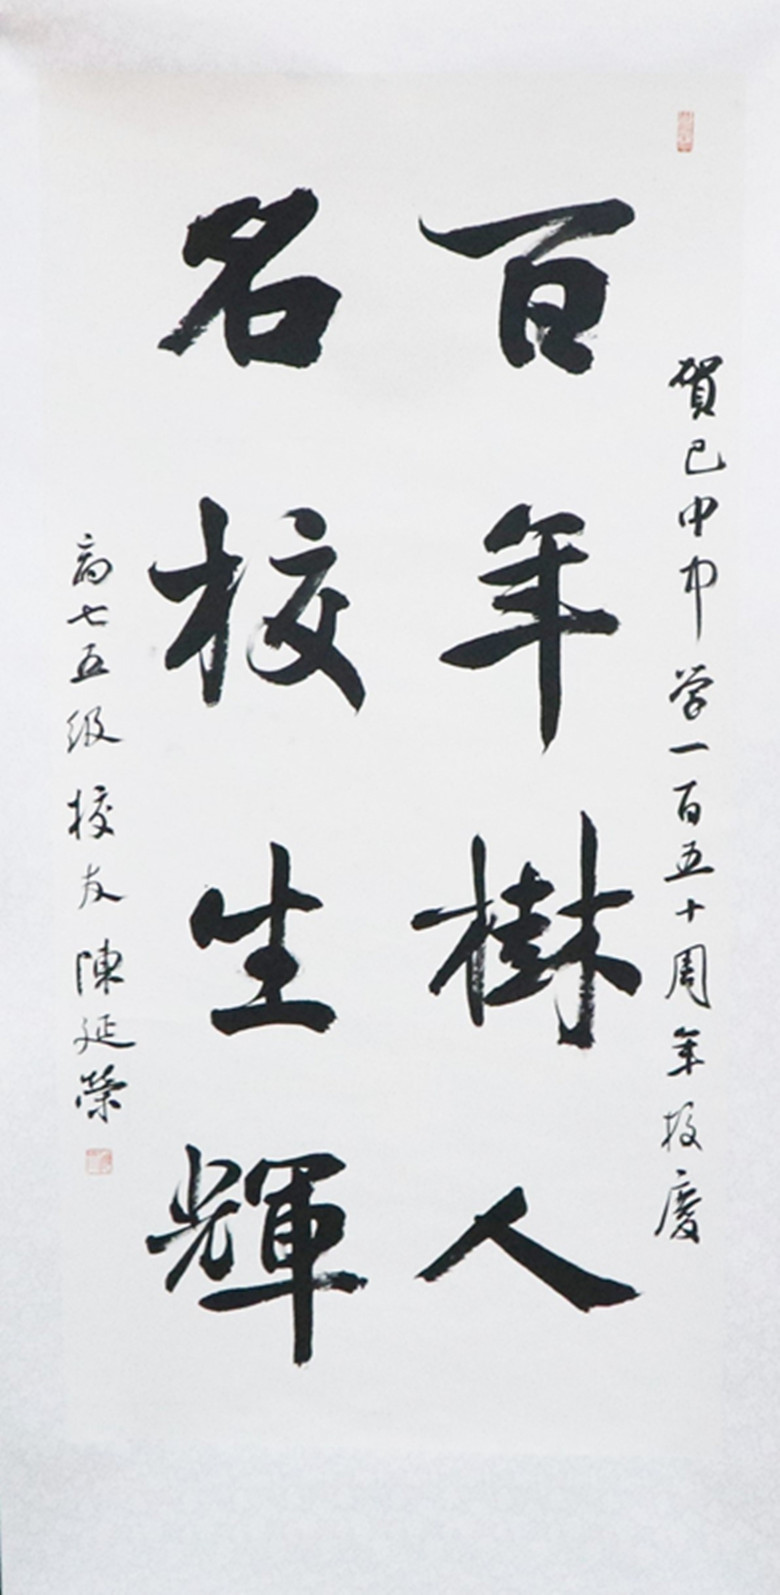 賀巴中中学一百五十周年校慶
百年樹人
名校生輝
高七五级校友陳延榮